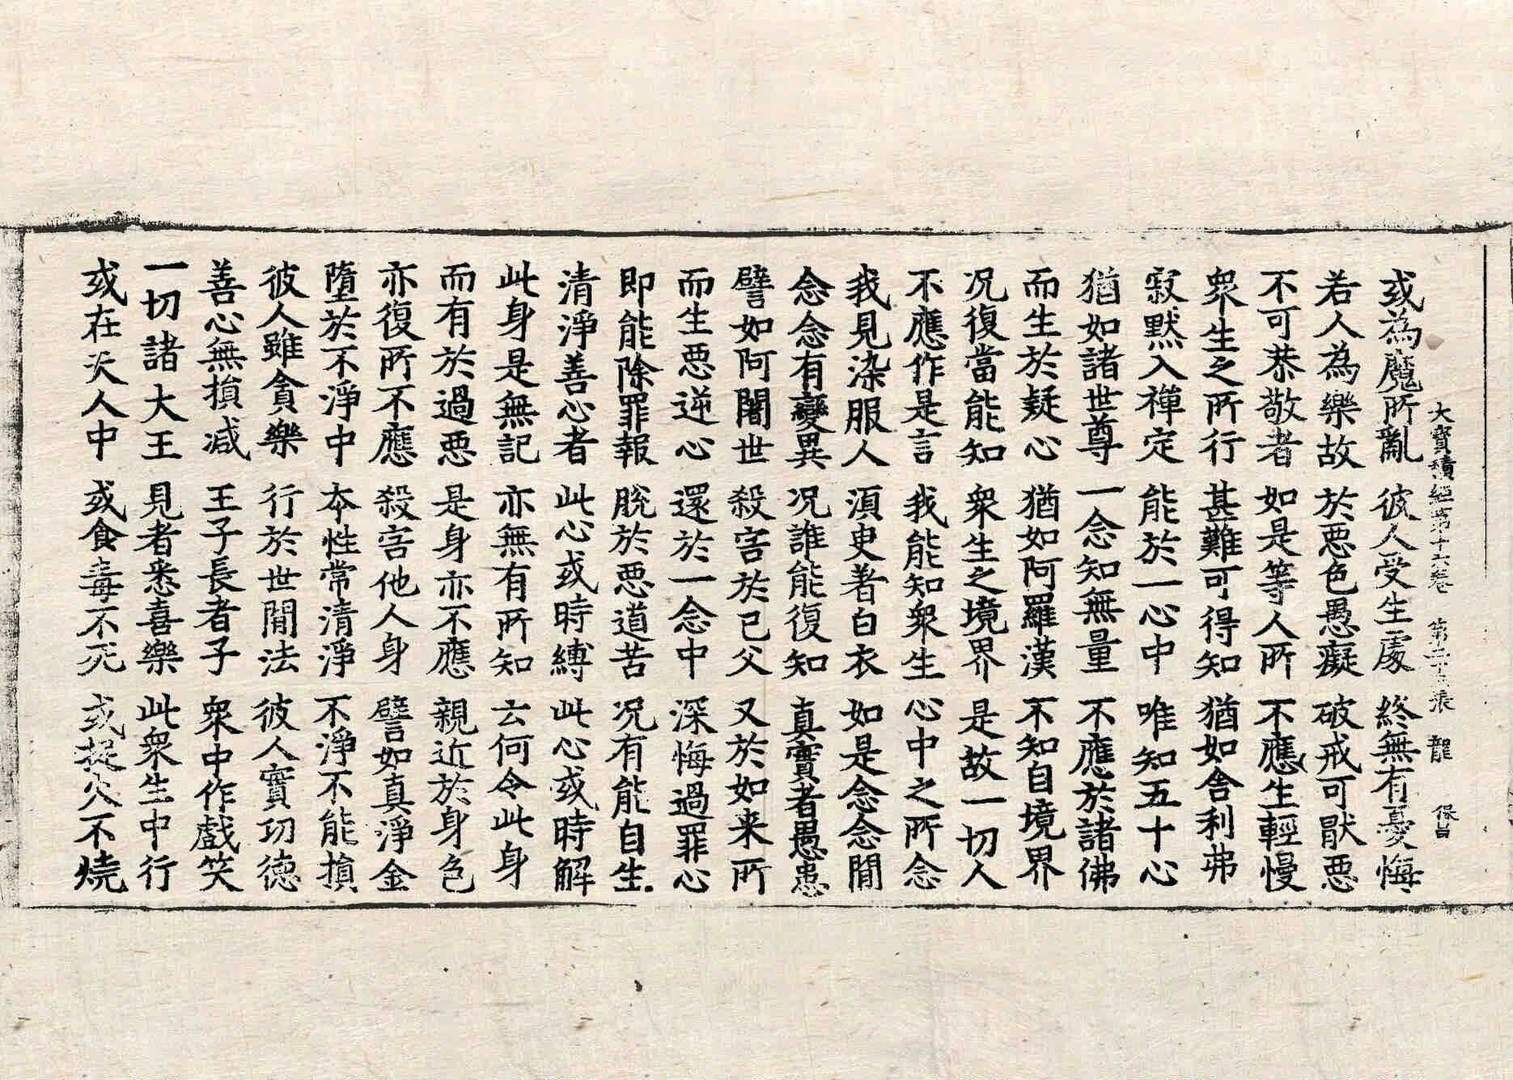 大寶積經第十六卷 第二十三張 龍 保昌
或為魔所亂 彼人受生處 終無有憂悔
若人為樂故 於惡色愚癡 破戒可厭惡
不可恭敬者 如是等人所 不應生輕慢
衆生之所行 甚難可得知 猶如舍利弗
寂默入禪定 能於一心中 唯知五十心
猶如諸世尊 一念知無量 不應於諸佛
而生於疑心 猶如阿羅漢 不知自境界
况復當能知 衆生之境界 是故一切人
不應作是言 我能知衆生 心中之所念
我見染服人 湏臾著白衣 如是念念間
念念有變異 况誰能復知 真實者愚恚
譬如阿闍世 殺害於己父 又於如来所
而生惡逆心 還於一念中 深悔過罪心
即能除罪報 脫於惡道苦 况有能自生
清淨善心者 此心或時縛 此心或時解
此身是無記 亦無有所知 云何令此身
而有於過惡 是身亦不應 親近於身色
亦復所不應 殺害他人身 譬如真淨金
墮於不淨中 本性常清淨 不淨不能損
彼人雖貪樂 行於世間法 彼人實功德
善心無損减 王子長者子 衆中作戲笑
一切諸大王 見者悉喜樂 此衆生中行
或在天人中 或食毒不死 或捉火不燒